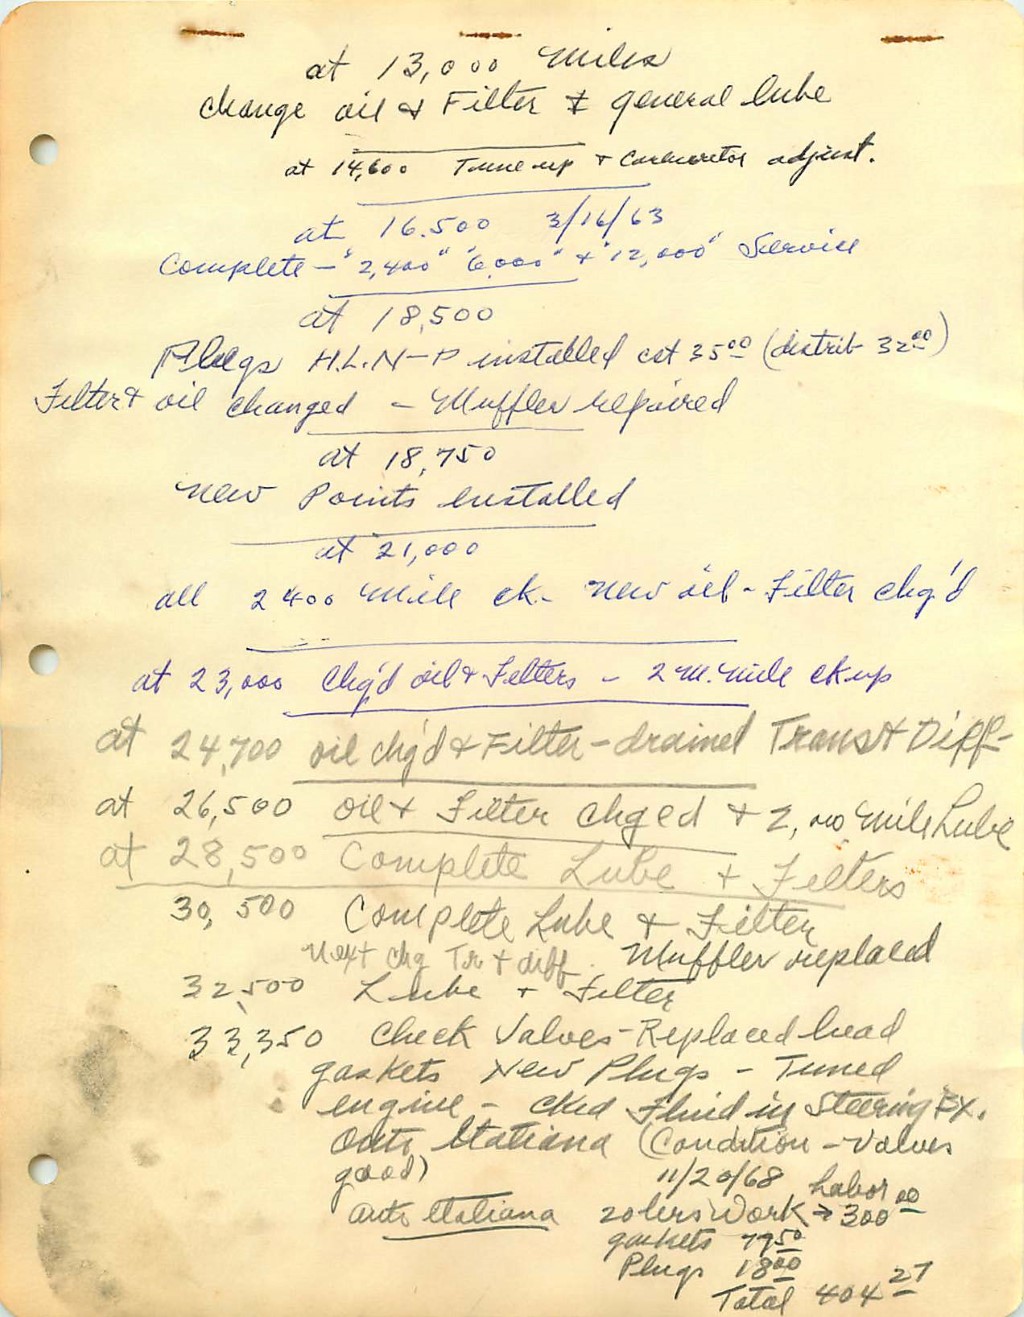 at 13,000 miles
change oil & Filter & general lube
at 14,600 Tune-up + Carburetor adjust.
at 16.500 3/16/63
Complete - "2,400" "6,000" + "12,000" Service
at 18,500
Plugs H.L.N-P installed cst 35 00 (distrib 32 00)
Filter + oil changed - Muffler repaired
at 18,750
New Points installed
at 21,000
all 2400 mile ck - New oil - Filter chg'd
at 23,000 Chg'd oil + Filters - 2 M. mile ck up
at 24,700 oil chg'd & Filter - drained Trans + Diff-
at 26,500 oil + Filter Chged + 2,000 mile Lube
at 28,500 Complete Lube + Filters
30,500 Complete Lube & Filter
Next chg Tr + diff. Muffler replaced
32,500 Lube + Filter
33,350 Check Valves - Replaced head
gaskets New Plugs - Tuned
engine - cked Fluid in Steering Bx.
Auto Italiana (Condition - Valves
good) 11/20/68 Labor
Auto Italiana Work → 300 00
gaskets 77 50
Plugs 18 00
Total 404 27